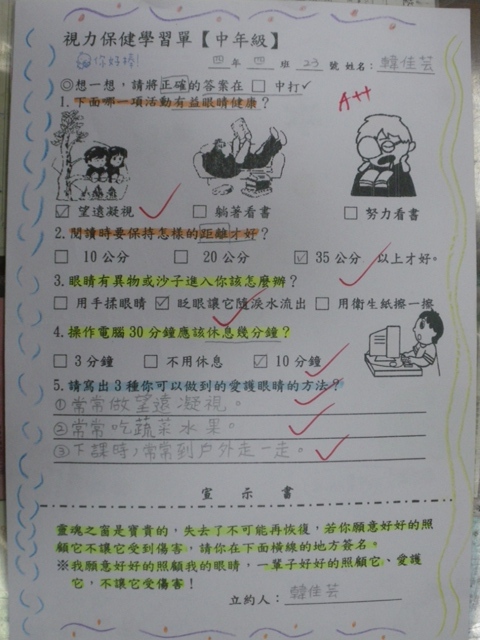 視力保健學習單【中年級】
你好棒!
四年 四 班 23 號 姓名: 韓佳芸
◎想一想,請將正確的答案在 □ 中打✓
1.下面哪一項活動有益眼睛健康?
A++
☑ 望遠凝視 □ 躺著看書 □ 努力看書
2.閱讀時要保持怎樣的距離才好?
□ 10 公分 □ 20 公分 ☑ 35 公分 以上才好。
3.眼睛有異物或沙子進入你該怎麼辦?
□ 用手揉眼睛 ☑ 眨眼讓它隨淚水流出 □ 用衛生紙擦一擦
4.操作電腦 30 分鐘應該休息幾分鐘?
□ 3 分鐘 □ 不用休息 ☑ 10 分鐘
5.請寫出 3 種你可以做到的愛護眼睛的方法?
①常常做望遠凝視。
②常常吃蔬菜水果。
③下課時,常常到戶外走一走。
宣 示 書
靈魂之窗是寶貴的,失去了不可能再恢復,若你願意好好的照
顧它不讓它受到傷害,請你在下面橫線的地方簽名。
※我願意好好的照顧我的眼睛,一輩子好好的照顧它、愛護
它,不讓它受傷害!
立約人: 韓佳芸